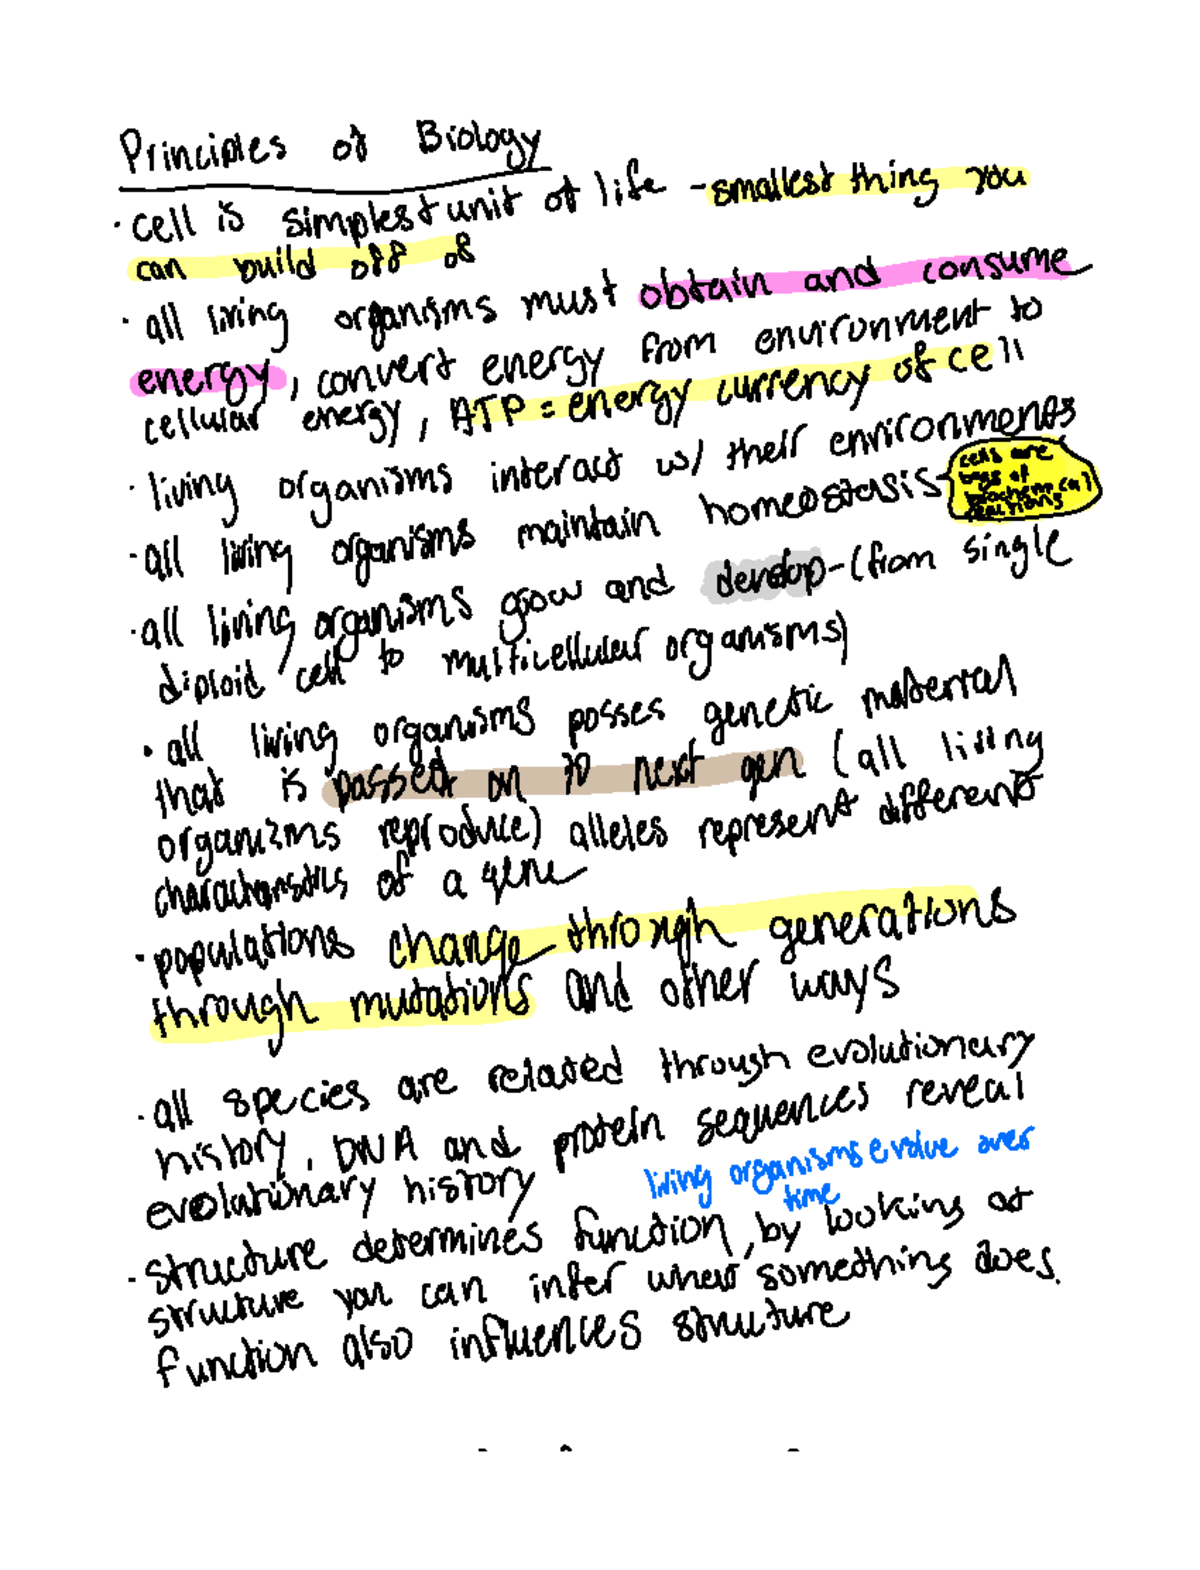 Principles of Biology
· cell is simplest unit of life - smallest thing you
can build off of
· all living organisms must obtain and consume
energy, convert energy from environment to
cellular energy, ATP = energy currency of cell
· living organisms interact w/ their environments
· all living organisms maintain homeostasis
cells are
bags of
biochemical
reactions
· all living organisms grow and develop - (from single
diploid cell to multicellular organisms)
· all living organisms posses genetic material
that is passed on to next gen (all living
organisms reproduce) alleles represent different
characteristics of a gene
· populations change through generations
through mutations and other ways
· all species are related through evolutionary
history, DNA and protein sequences reveal
evolutionary history
living organisms evolve over
time
· structure determines function, by looking at
structure you can infer what something does.
function also influences structure